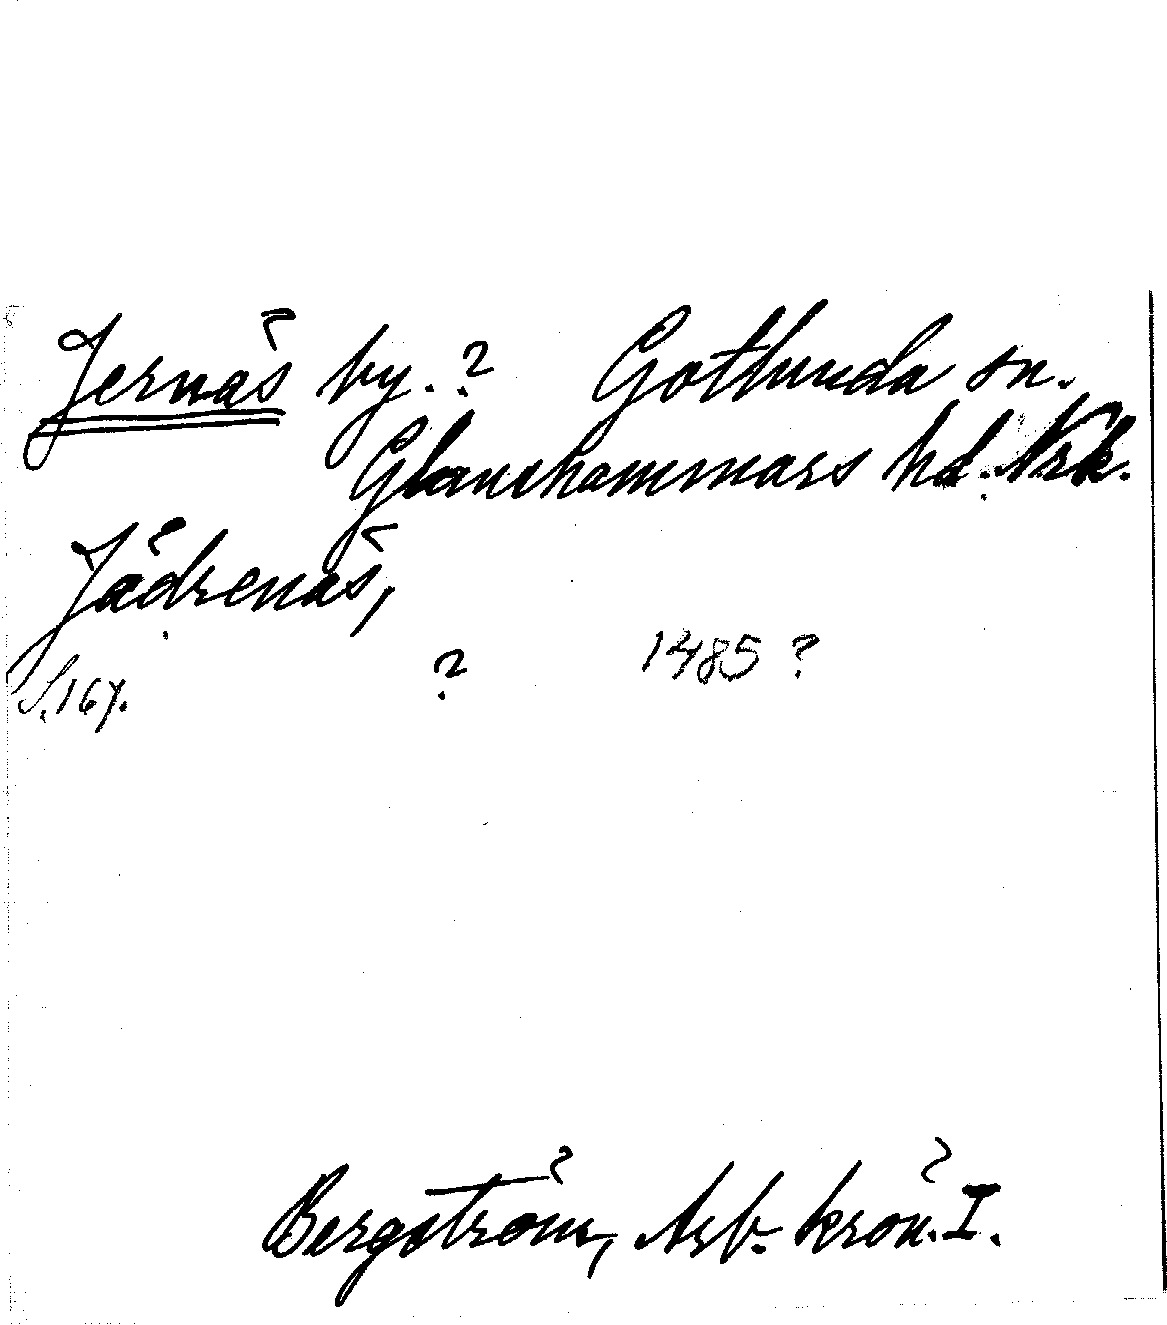 Jernäs by.? Gotlunda sn.
Glanshammars hd. Nrk.
Jädrenäs,
S. 167. ? 1485 ?
Bergström, Arb. krön. I.